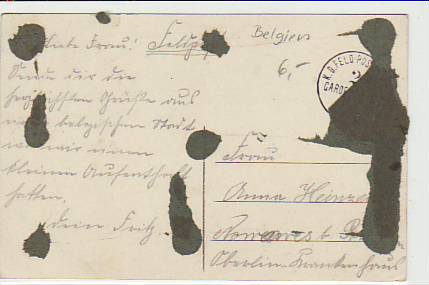 Liebe Frau! Feldp
Belgien
6,-
Sende dir die
herzlichsten Grüße aus
belgischen Stadt
wo wir einen
kleinen Aufenthalt
hatten.
dein Fritz.
K.D. FELD-POS
GARDE
Frau
Anna Heinze
Nowawes b.
Oberlin Krankenhaus